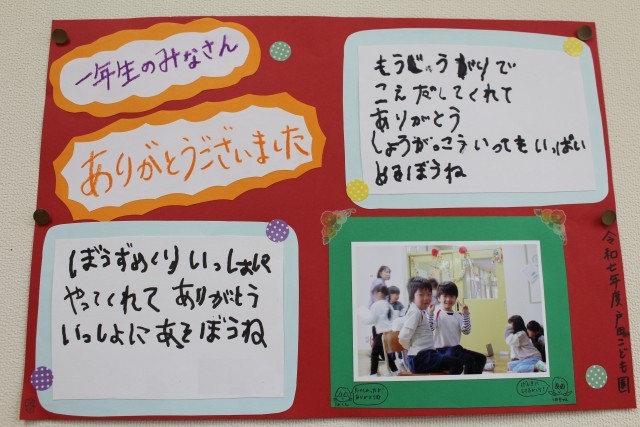 一年生のみなさん
ありがとうございました
もうじゅうがりで
こえだしてくれて
ありがとう
しょうがっこういってもいっぱい
あそぼうね
ぼうずめくりいっしょに
やってくれてありがとう
いっしょにあそぼうね
令和七年度戸田こども園